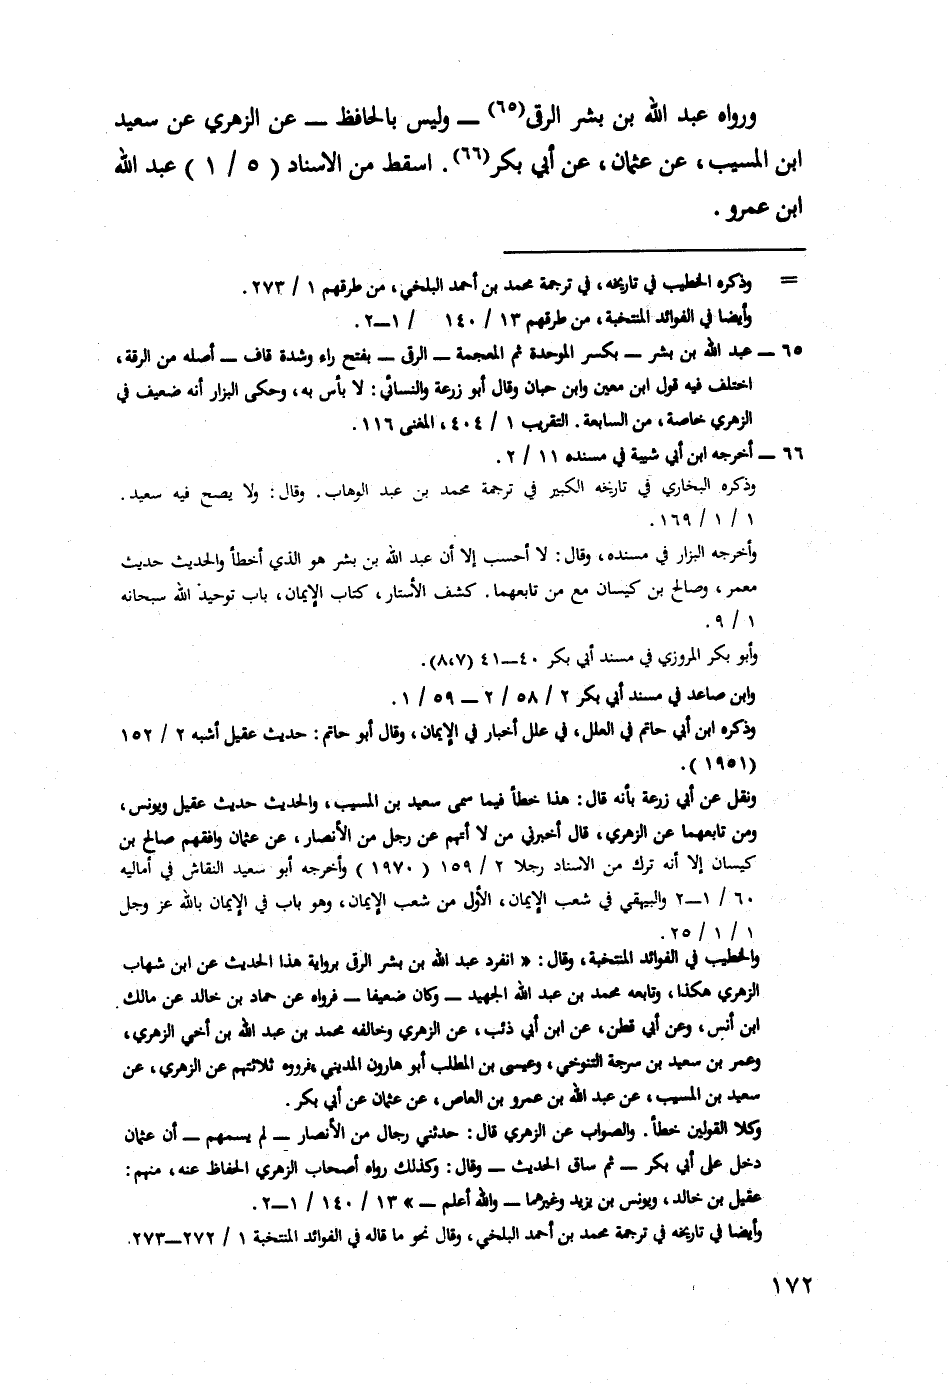 ورواه عبد الله بن بشر الرقى(٦٥) — وليس بالحافظ — عن الزهري عن سعيد
ابن المسيب، عن عثمان، عن أبي بكر(٦٦). اسقط من الاسناد ( ٥ / ١ ) عبد الله
ابن عمرو .
= وذكره الخطيب في تاريخه، في ترجمة محمد بن أحمد البلخي، من طرقهم ١ / ٢٧٣.
وأيضا في الفوائد المنتخبة، من طرقهم ١٣ / ١٤٠ / ١—٢.
٦٥ — عبد الله بن بشر — بكسر الموحدة ثم المعجمة — الرقى — بفتح راء وشدة قاف — أصله من الرقة،
اختلف فيه قول ابن معين وابن حبان وقال أبو زرعة والنسائي: لا بأس به، وحكى البزار أنه ضعيف في
الزهري خاصة، من السابعة. التقريب ١ / ٤٠٤، المغنى ١١٦.
٦٦ — أخرجه ابن أبي شيبة في مسنده ١١ / ٢.
وذكره البخاري في تاريخه الكبير في ترجمة محمد بن عبد الوهاب. وقال: ولا يصح فيه سعيد.
١ / ١ / ١٦٩.
وأخرجه البزار في مسنده، وقال: لا أحسب إلا أن عبد الله بن بشر هو الذي أخطأ والحديث حديث
معمر، وصالح بن كيسان مع من تابعهما. كشف الأستار، كتاب الإيمان، باب توحيد الله سبحانه
١ / ٩.
وأبو بكر المروزي في مسند أبي بكر ٤٠—٤١ (٨،٧).
وابن صاعد في مسند أبي بكر ٢ / ٥٨ / ٢ — ٥٩ / ١.
وذكره ابن أبي حاتم في العلل، في علل أخبار في الإيمان، وقال أبو حاتم: حديث عقيل أشبه ٢ / ١٥٢
(١٩٥١).
ونقل عن أبي زرعة بأنه قال: هذا خطأ فيما سمى سعيد بن المسيب، والحديث حديث عقيل ويونس،
ومن تابعهما عن الزهري، قال أخبرني من لا أتهم عن رجل من الأنصار، عن عثمان وافقهم صالح بن
كيسان إلا أنه ترك من الاسناد رجلا ٢ / ١٥٩ ( ١٩٧٠ ) وأخرجه أبو سعيد النقاش في أماليه
٦٠ / ١—٢ والبيهقي في شعب الإيمان، الأول من شعب الإيمان، وهو باب في الإيمان بالله عز وجل
١ / ١ / ٢٥.
والخطيب في الفوائد المنتخبة، وقال: « انفرد عبد الله بن بشر الرقى برواية هذا الحديث عن ابن شهاب
الزهري هكذا، وتابعه محمد بن عبد الله الجهبد — وكان ضعيفا — فرواه عن حماد بن خالد عن مالك
ابن أنس، وعن أبي قطن، عن ابن أبي ذئب، عن الزهري وخالفه محمد بن عبد الله بن أخي الزهري،
وعمر بن سعيد بن سرجة التنوخي، وعيسى بن المطلب أبو هارون المديني،فرووه ثلاثتهم عن الزهري، عن
سعيد بن المسيب، عن عبد الله بن عمرو بن العاص، عن عثمان عن أبي بكر.
وكلا القولين خطأ. والصواب عن الزهري قال: حدثني رجال من الأنصار — لم يسمهم — أن عثمان
دخل على أبي بكر — ثم ساق الحديث — وقال: وكذلك رواه أصحاب الزهري الحفاظ عنه، منهم:
عقيل بن خالد، ويونس بن يزيد وغيرهما — والله أعلم — » ١٣ / ١٤٠ / ١—٢.
وأيضا في تاريخه في ترجمة محمد بن أحمد البلخي، وقال نحو ما قاله في الفوائد المنتخبة ١ / ٢٧٢—٢٧٣.
١٧٢